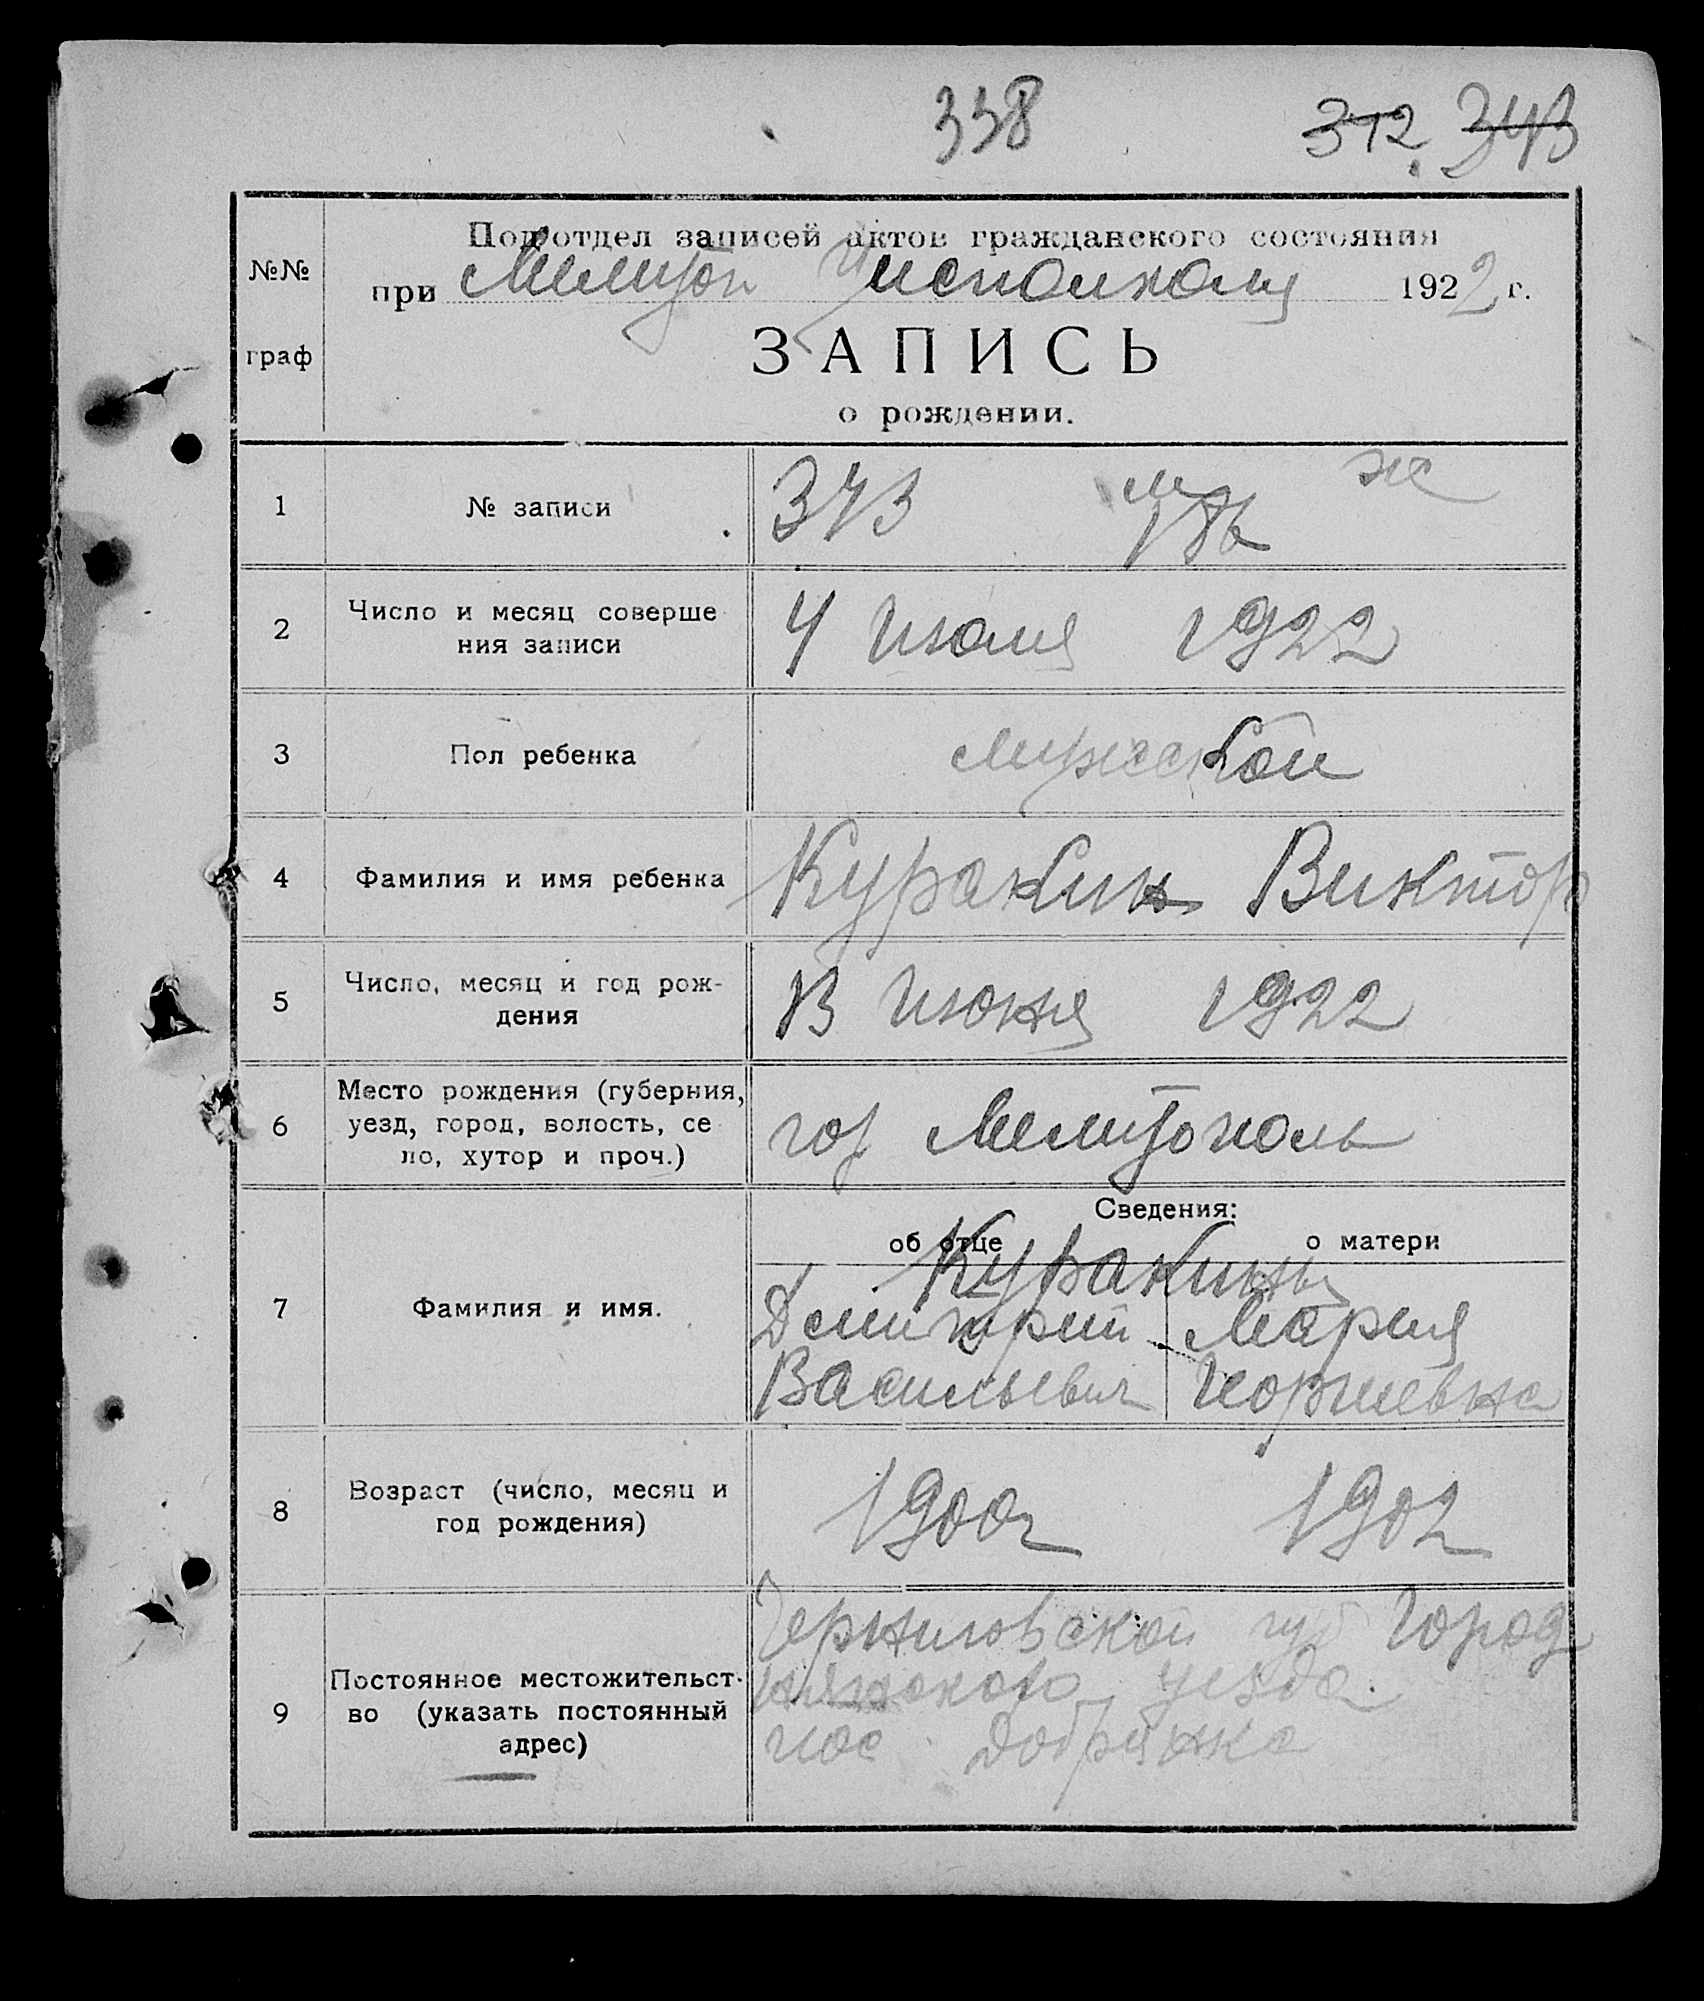 338 312 343
Подотдел записей актов гражданского состояния
№№
при Мелитоп Уисполкома 1922 г.
граф
ЗАПИСЬ
о рождении.
1 № записи 343 м ж
186
2 Число и месяц соверше
ния записи
4 Июля 1922
3 Пол ребенка мужской
4 Фамилия и имя ребенка Куракин Виктор
5 Число, месяц и год рож-
дения
13 Июня 1922
6 Место рождения (губерния,
уезд, город, волость, се
ло, хутор и проч.)
гор Мелитополь
Сведения:
об отце о матери
Куракины
7 Фамилия и имя.
Дмитрий Мария
Васильевич
8 Возраст (число, месяц и
год рождения)
1900г 1902
9 Постоянное местожительст-
во (указать постоянный
адрес)
Черниговской губ Город
нянского уезда.
пос Добрянка